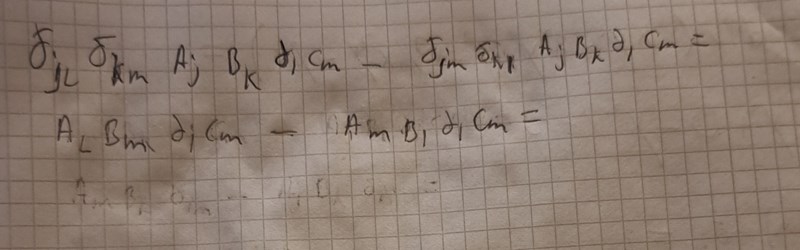 δ_jL δ_km A_j B_k ∂_l C_m − δ_jm δ_kl A_j B_k ∂_l C_m =
A_L B_m ∂_l C_m − A_m B_l ∂_l C_m =